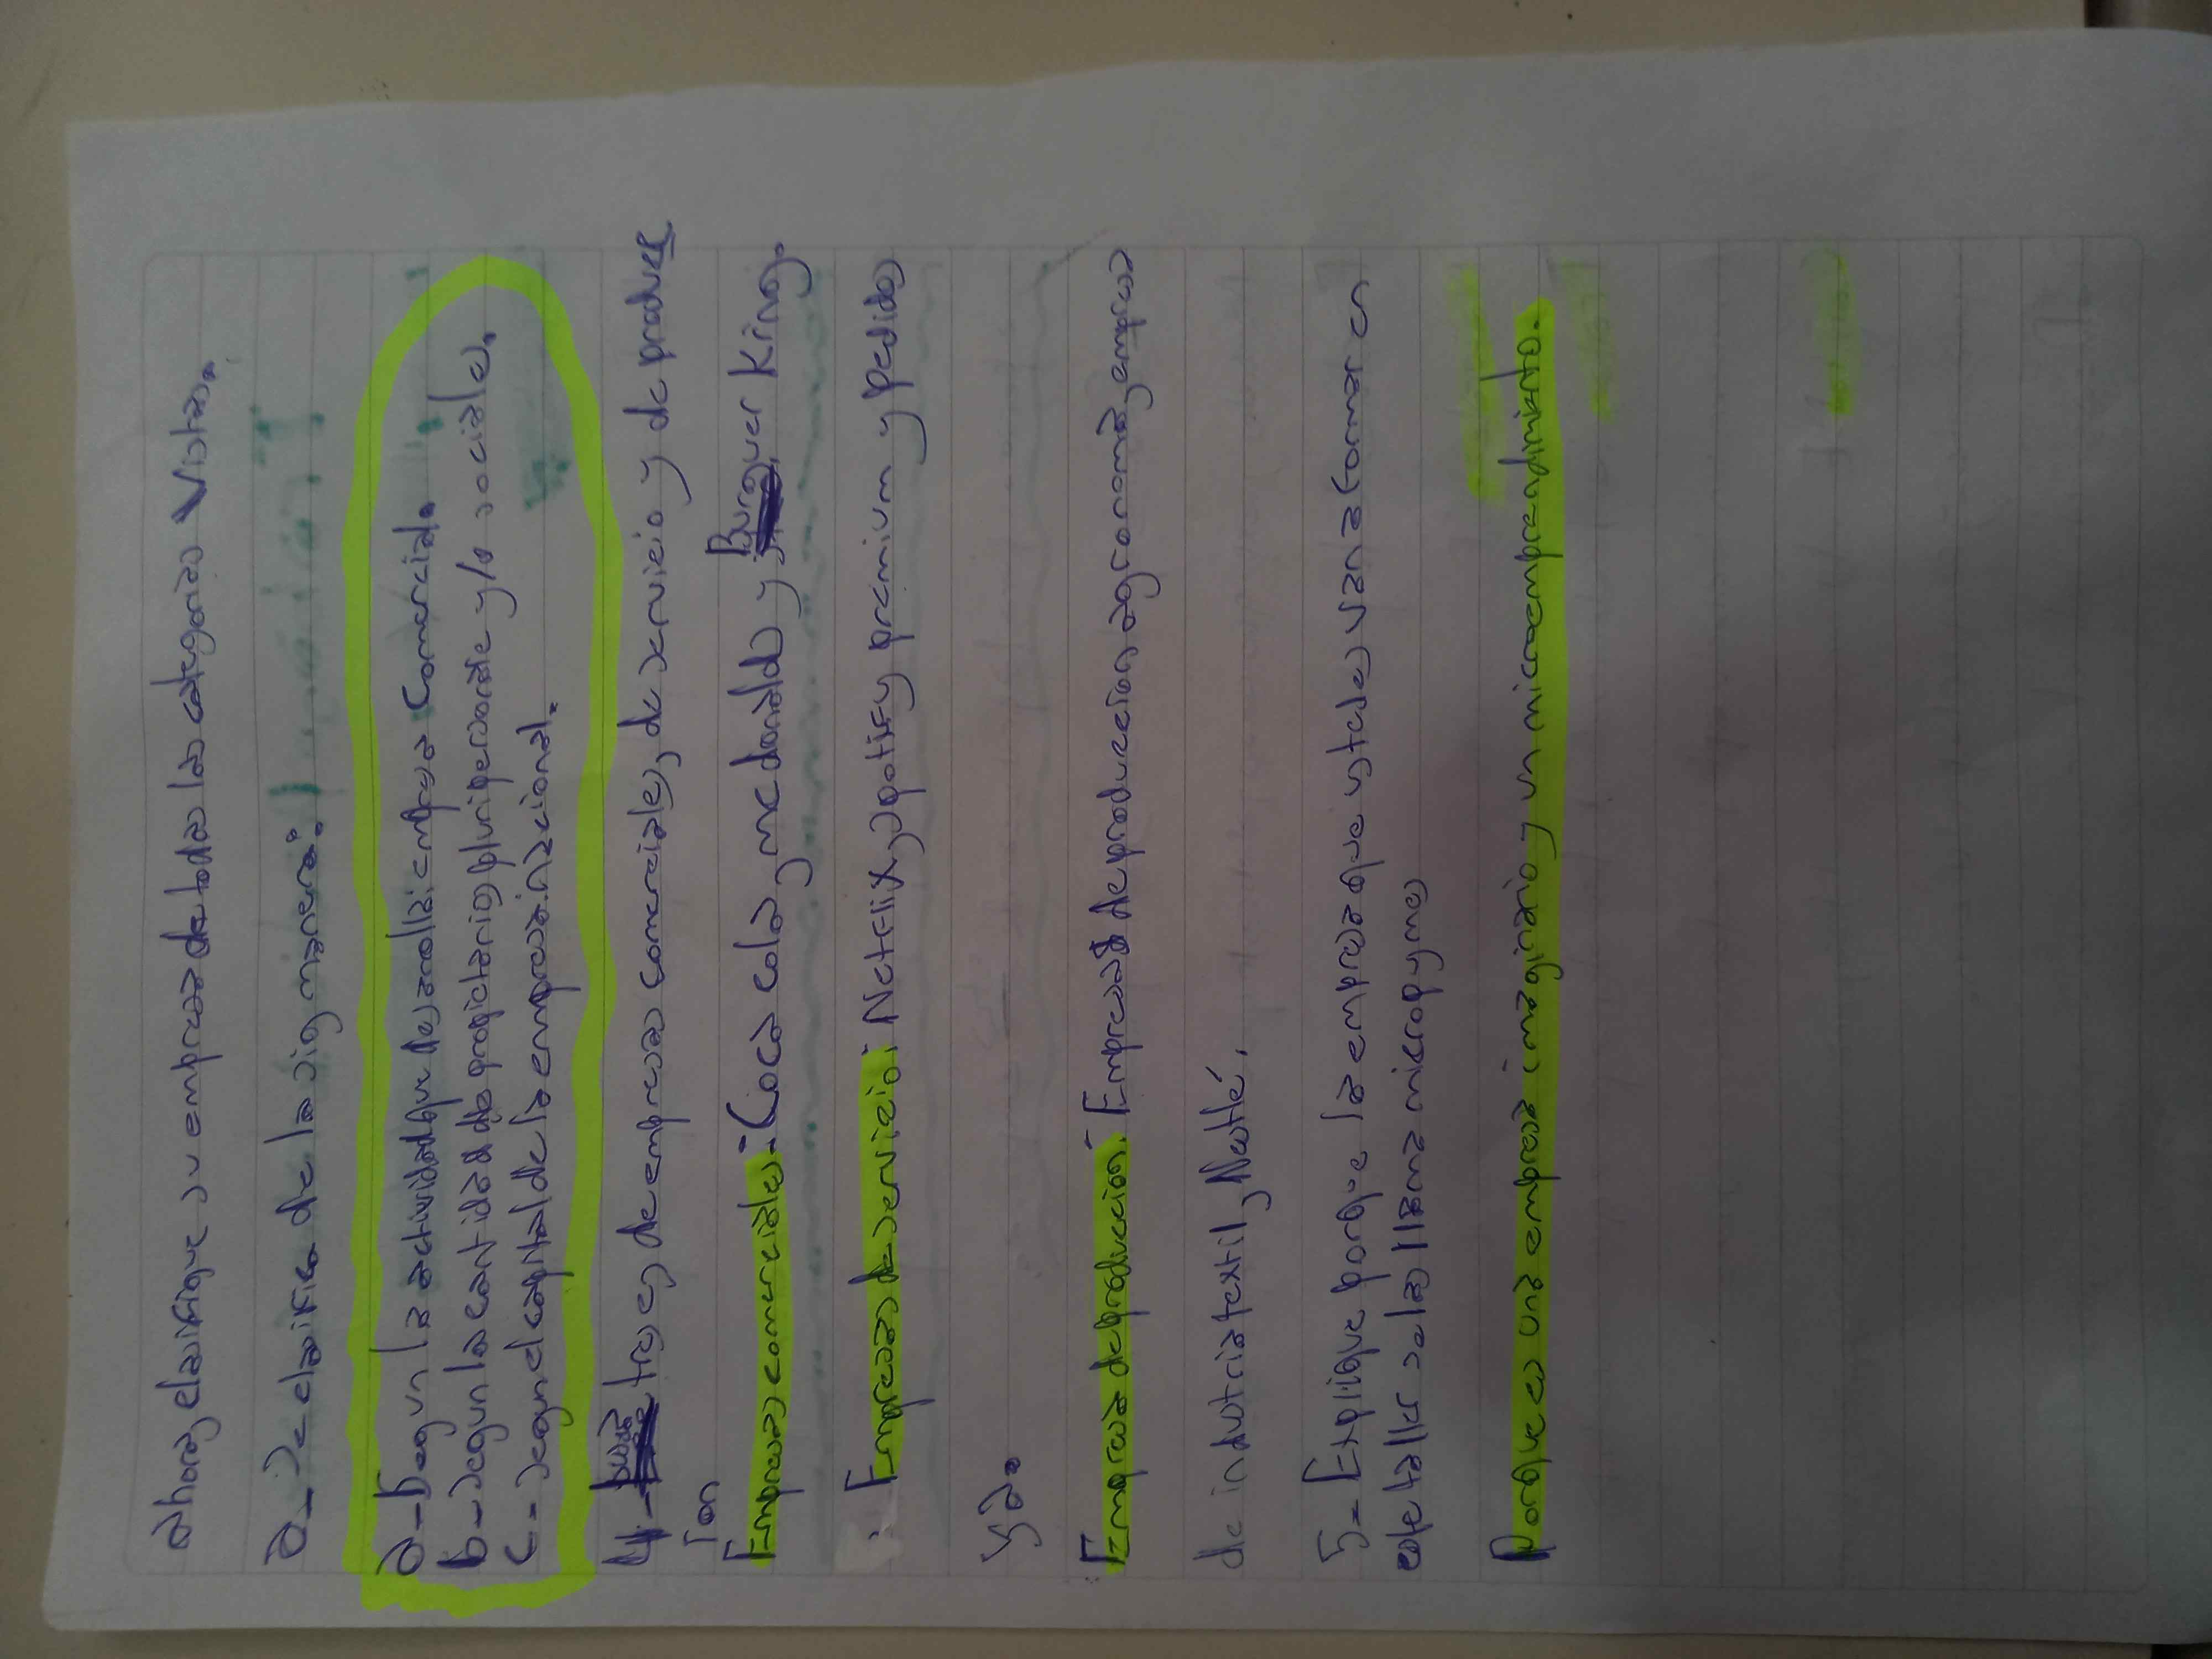 ahora, clasifique su empresa de todas las categorias vistas.
a- Se clasifica de la sig manera:
a- Segun la actividad que desarolla: empresa Comercial.
b- Segun la cantidad de propietarios, pluripersonale y/o sociale.
c- Segun el capital de la empresa: nacional.
4- busca tres ej de empresas comerciales, de servicio y de producc
ion
Empresas comerciales: Coca cola, mcdonalds y Burguer King.
Empresas de servicio: Netflix, spotify premium y pedidos
ya.
Empresas de producción: Empresas de produccion agronomas, empresa
de industria textil, Nestlé.
5- Explique porque la empresa que ustedes van a formar en
este taller se las llama micropymes
Porque es una empresa imaginario y un microemprendimiento.